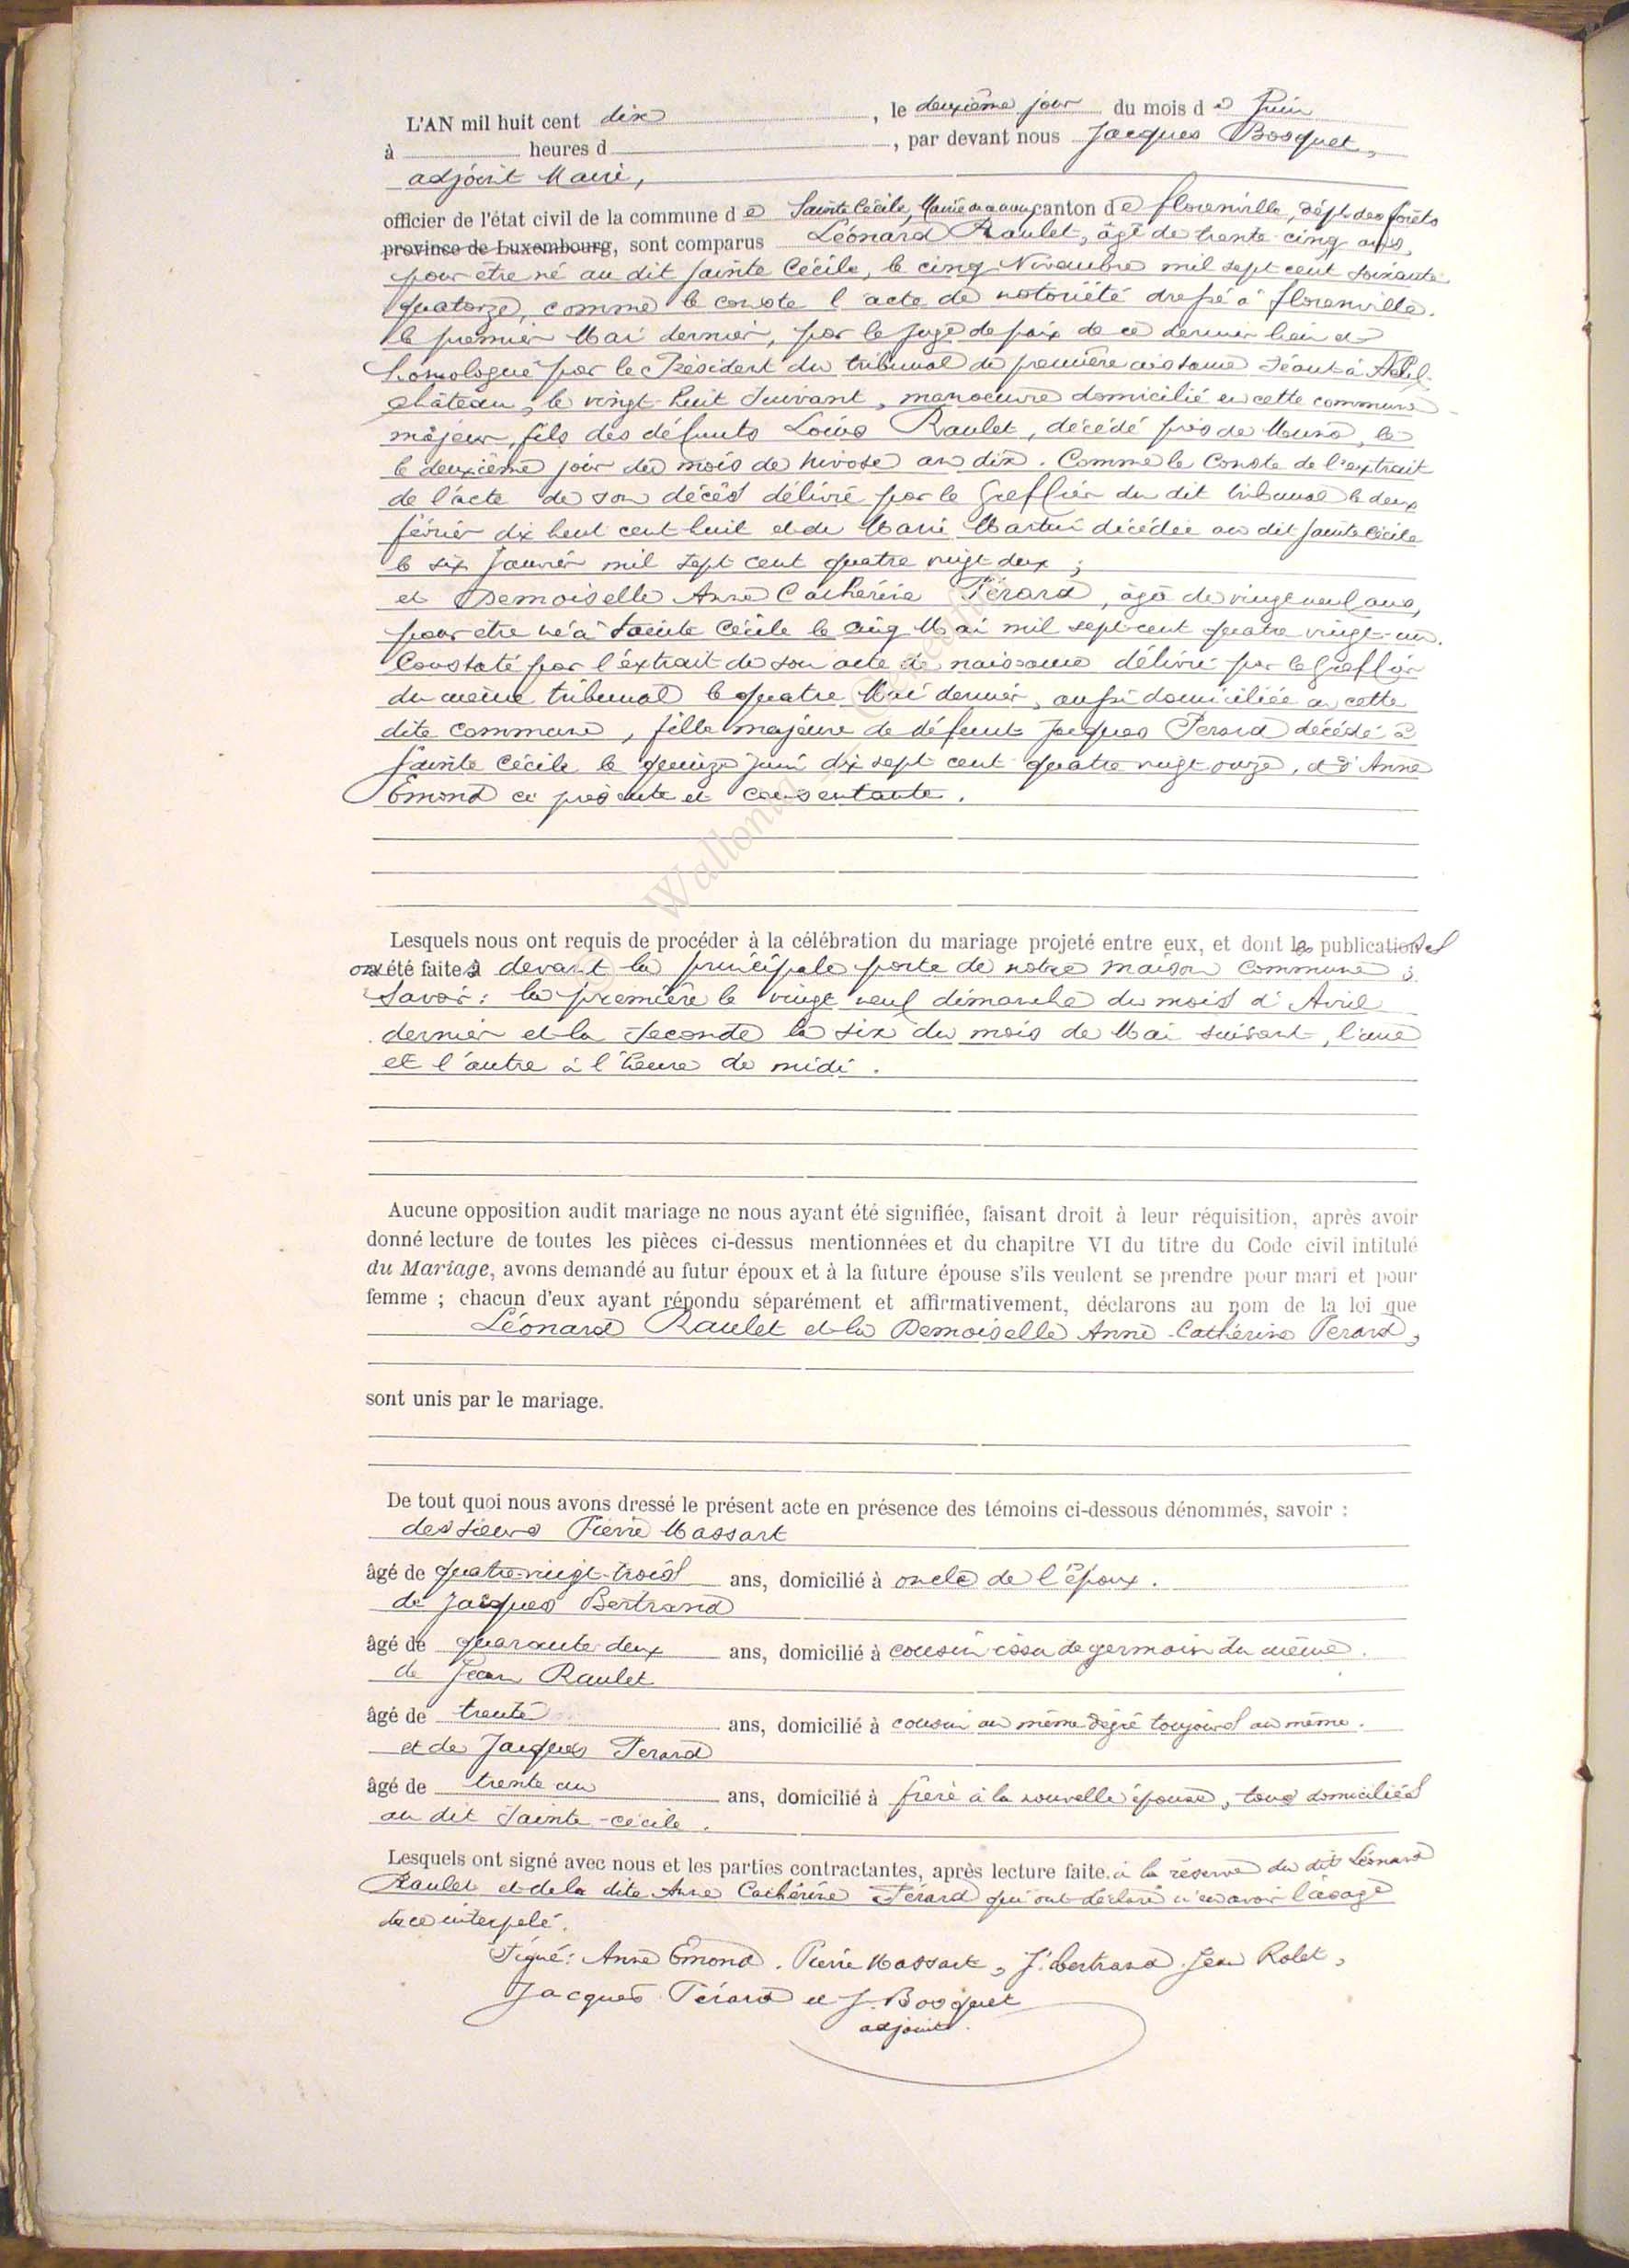 L'AN mil huit cent dix, le deuxième jour du mois de Juin
à heures d, par devant nous Jacques Bosquet,
adjoint Maire,
officier de l'état civil de la commune de Sainte Cécile, Mairie canton de florenville, dépt. des forêts
province de Luxembourg, sont comparus Léonard Raulet, âgé de trente-cinq ans,
pour être né au dit Sainte Cécile, le cinq Novembre mil sept cent soixante
quatorze, comme le conste l'acte de notoriété dressé à florenville
le premier Mai dernier, par le juge de paix de ce dernier lieu et
homologué par le Président du tribunal de première instance séant à Neuf-
château, le vingt-huit suivant, manoeuvre domicilié en cette commune
majeur, fils des défunts Louis Raulet, décédé près de Muno, le
le deuxième jour du mois de nivose an dix. Comme le Conste de l'extrait
de l'acte de son décès délivré par le Greffier du dit tribunal le deux
février dix huit cent huit et de Marie Martin décédée au dit Sainte Cécile
le six Janvier mil sept cent quatre vingt deux ;
et Demoiselle Anne Cathérine Pérard, âgé de vingt neuf ans,
pour être né à Sainte Cécile le cinq Mai mil sept-cent quatre vingt-un.
Constaté par l'extrait de son acte de naissance délivré par le Greffier
du même tribunal le quatre Mai dernier, aussi domiciliée en cette
dite commune, fille majeure de défunt Jacques Perard décédé à
Sainte Cécile le quinze juin dix sept cent quatre vingt onze, et d'Anne
Emond ci présente et consentante.
Wallonia
Lesquels nous ont requis de procéder à la célébration du mariage projeté entre eux, et dont les publications
ont été faites devant la principale porte de notre maison commune ;
Savoir : la première le vingt neuf dimanche du mois d'Avril
dernier et la seconde le six du mois de Mai suivant, l'une
et l'autre à l'heure de midi.
Aucune opposition audit mariage ne nous ayant été signifiée, faisant droit à leur réquisition, après avoir
donné lecture de toutes les pièces ci-dessus mentionnées et du chapitre VI du titre du Code civil intitulé
du Mariage, avons demandé au futur époux et à la future épouse s'ils veulent se prendre pour mari et pour
femme ; chacun d'eux ayant répondu séparément et affirmativement, déclarons au nom de la loi que
Léonard Raulet et la Demoiselle Anne-Cathérine Perard,
sont unis par le mariage.
De tout quoi nous avons dressé le présent acte en présence des témoins ci-dessous dénommés, savoir :
des sieurs Pierre Massart
âgé de quatre-vingt-trois ans, domicilié à oncle de l'époux.
de Jacques Bertrand
âgé de quarante deux ans, domicilié à cousin issu de germain du même.
de Jean Raulet
âgé de trente ans, domicilié à cousin au même dégré toujours au même.
et de Jacques Perard
âgé de trente un ans, domicilié à frère à la nouvelle épouse, tous domiciliés
au dit Sainte-cécile.
Lesquels ont signé avec nous et les parties contractantes, après lecture faite. à la réserve du dit Léonard
Raulet et de la dite Anne Cathérine Pérard qui ont déclaré n'en avoir l'usage
de ce interpelé.
Signé : Anne Emond. Pierre Massart, J. bertrand. Jean Rolet,
Jacques Pérard et J. Bosquet
adjoint.